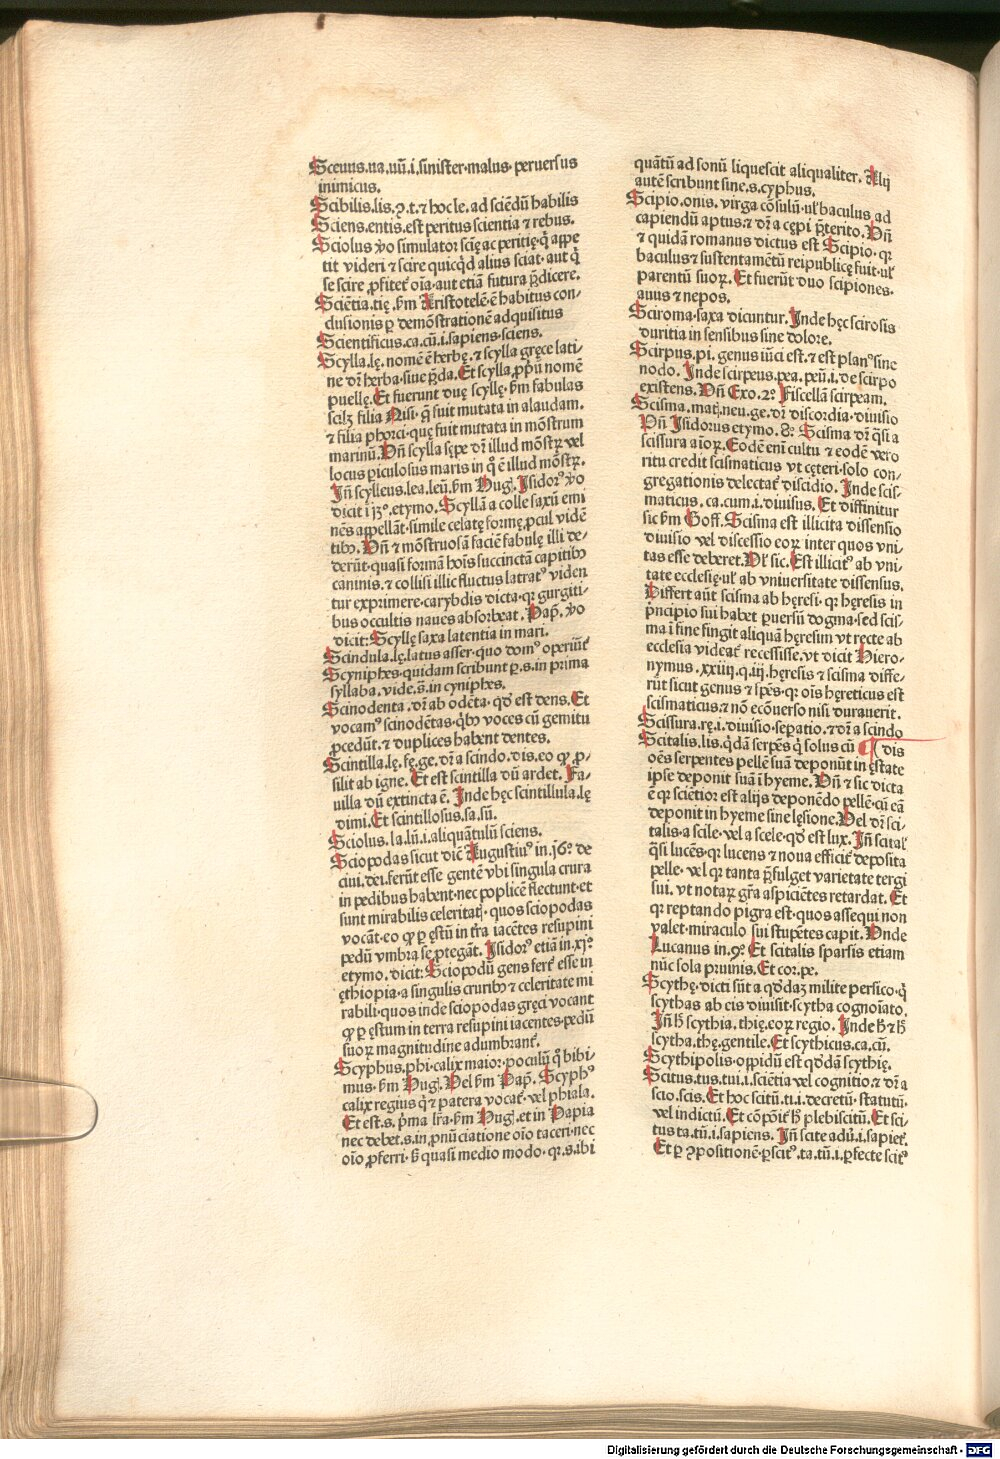 Sceuus.ua.uū.i.sinister·malus· peruersus
inimicus.
Scibilis.lis.ꝯ.t.⁊ hoc le.ad sciēdū habilis
Sciens.entis.est peritus scientia ⁊ rebus.
Sciolus v̄o simulator scię ac peritię·q̄ appe
tit videri ⁊ scire quicq̄d alius sciat·aut q̄
se scire ꝓfitet᷑ oīa·aut etiā futura p̄dicere.
Sciētia.tię.ẜm Aristotelē·ē habitus con-
clusionis ꝑ demōstrationē adquisitus
Scientificus.ca.cū.i.sapiens·sciens.
Scylla.lę.nomē ē herbę.⁊ scylla gręce lati-
ne dr̄ herba·siue p̄da.Et scylla.ꝓpriū nomē
puellę.Et fuerunt duę scyllę·ẜm fabulas
scilꝫ filia Nisi·q̄ fuit mutata in alaudam.
⁊ filia phorci·quę fuit mutata in mōstrum
marinū.Vn̄ scylla sępe dr̄ illud mōstꝝ vel
locus ꝑiculosus maris in qͦ ē illud mōstꝝ.
Jn̄ scylleus.lea.leū.ẜm Hug.Jsidorꝰ v̄o
dicit ī ȷ3°.etymo.Scyllā a colle saxū emi
nēs appellāt·simile celatę formę.ꝓcul vidē
tibꝫ.Vn̄ ⁊ mōstruosā faciē fabulę illi de-
derūt·quasi formā hoīs succinctā capitibꝫ
caninis.⁊ collisi illic fluctus latratꝰ viden
tur exprimere·carybdis dicta·qꝛ gurgiti-
bus occultis naues absorbeat.Pap. v̄o
dicit:Scyllę saxa latentia in mari.
Scindula.lę.latus asser·quo domꝰ operiūt᷑
Scyniphes·quidam scribunt ꝑ.s.in prima
syllaba.vide.s̄.in cyniphes.
Scinodenta.dr̄ ab odēta·qd̓ est dens.Et
vocamꝰ scinodētas·qͥbꝫ voces cū gemitu
ꝓcedūt.⁊ duplices habent dentes.
Scintilla.lę.fę.ge.dr̄ a scindo.dis.eo ꝙ ꝓ-
silit ab igne.Et est scintilla dū ardet.Fa-
uilla dū extincta ē.Jnde hęc scintillula.lę
dimi.Et scintillosus.sa.sū.
Sciolus.la.lū.i.aliquātulū sciens.
Sciopodas sicut dic̄ Augustinꝰ in.ȷ6°.de
ciui.dei.ferūt esse gentē vbi singula crura
in pedibus habent·nec poplicē flectunt·et
sunt mirabilis celeritatꝭ·quos sciopodas
vocāt·eo ꝙ ꝑ ęstū in tr̄a iacētes resupini
pedū vmbra se ꝓtegāt.Jsidorꝰ etiā in.xj°.
etymo.dicit:Sciopodū gens fert᷑ esse in
ęthiopia·a singulis cruribꝫ ⁊ celeritate mi
rabili·quos inde sciopodas gręci vocant
ꝙ ꝑ ęstum in terra resupini iacentes·pedū
suoꝝ magnitudine adumbrant᷑.
Scyphus.phi·calix maior·poculū q̄ bibi-
mus·ẜm Hug.Vel ẜm Pap. Scyphꝰ
calix regius qͥ ⁊ patera vocat᷑·vel phiala.
Et est.s.p̄ma lr̄a·ẜm Hug.et in Papia
nec debet.s.in ꝓnūciatione oīo taceri·nec
oīo ꝓferri·s̄ quasi medio modo·qꝛ.s.ibi
quātū ad sonū liquescit aliqualiter.Alij
autē scribunt sine.s.cyphus.
Scipio.onis.virga cōsulū·ul̓ baculus ad
capiendū aptus.⁊ dr̄ a cępi p̄terito.Vn̄
⁊ quidā romanus dictus est Scipio·qꝛ
baculus ⁊ sustentamētū reipublicę fuit·ul̓
parentū suoꝝ.Et fuerūt duo scipiones·
auus ⁊ nepos.
Sciroma·saxa dicuntur.Jnde hęc scirosis
duritia in sensibus sine dolore.
Scirpus.pi.genus iūci est.⁊ est planꝰ sine
nodo.Jnde scirpeus.pea.peū.i.de scirpo
existens.Vn̄ Exo.2°.Fiscellā scirpeam.
Scisma.matꝭ.neu.ge.dr̄ discordia·diuisio
Vn̄ Jsidorus etymo.8°.Scisma dr̄ q̄si a
scissura aīoꝝ.Eodē enī cultu ⁊ eodē vero
ritu credit scismaticus vt cęteri·solo con-
gregationis delectat᷑ discidio.Jnde scis-
maticus.ca.cum.i.diuisus.Et diffinitur
sic ẜm Goff.Scisma est illicita dissensio
diuisio vel discessio eoꝝ inter quos vni-
tas esse deberet.Vl̓ sic.Est illicitꝰ ab vni-
tate ecclesię·ul̓ ab vniuersitate dissensus.
Differt aūt scisma ab hęresi·qꝛ hęresis in
p̄ncipio sui habet ꝑuersū dogma·sed scis-
ma ī fine fingit aliquā hęresim vt recte ab
ecclesia videat᷑ recessisse.vt dicit Hiero-
nymus.xxiiij.q.iij.hęresis ⁊ scisma diffe-
rūt sicut genus ⁊ sp̄es·qꝛ oīs hęreticus est
scismaticus·⁊ nō ecōuerso nisi durauerit.
Scissura.rę.i.diuisio·seꝑatio.⁊ dr̄ a scindo
Scitalis.lis.qͥdā serpēs q̄ solus cū ¶ dis
oēs serpentes pellē suā deponūt in ęstate
ipse deponit suā ī hyeme.Vn̄ ⁊ sic dicta
ē qꝛ sciētior est alijs deponēdo pellē·cū eā
deponit in hyeme sine lęsione.Vel dr̄ sci-
talis·a scile·vel a scele·qd̓ est lux.Jn̄ scital᷑
q̄si lucēs·qꝛ lucens ⁊ noua efficit᷑ deposita
pelle· vel qꝛ tanta p̄fulget varietate tergi
sui.vt notaꝝ gr̄a aspiciētes retardat.Et
qꝛ reptando pigra est·quos assequi non
valet·miraculo sui stupētes capit.Vnde
Lucanus in.9°.Et scitalis sparsis etiam
nūc sola pruinis.Et cor.pe.
Scythę.dicti sūt a qͦdaꝫ milite persico·qͥ
scythas ab eis diuisit·scytha cognoīato.
Jn̄ h̄ scythia.thię.eoꝝ regio.Jnde h̄ ⁊ h̄
scytha.thę.gentile.Et scythicus.ca.cū.
Scythipolis·oppidū est qd̓dā scythię.
Scitus.tus.tui.i.sciētia vel cognitio.⁊ dr̄ a
scio.scis.Et hoc scitū.ti.i.decretū·statutū·
vel indictū.Et cōponit᷑ h̄ plebiscitū.Et sci-
tus.ta.tū.i.sapiens.Jn̄ scite adū.i.sapiēt᷑.
Et ꝑ ꝯpositionē·ꝑscitꝰ.ta.tū.i.ꝑfecte scitꝰ
Digitalisierung gefördert durch die Deutsche Forschungsgemeinschaft · DFG